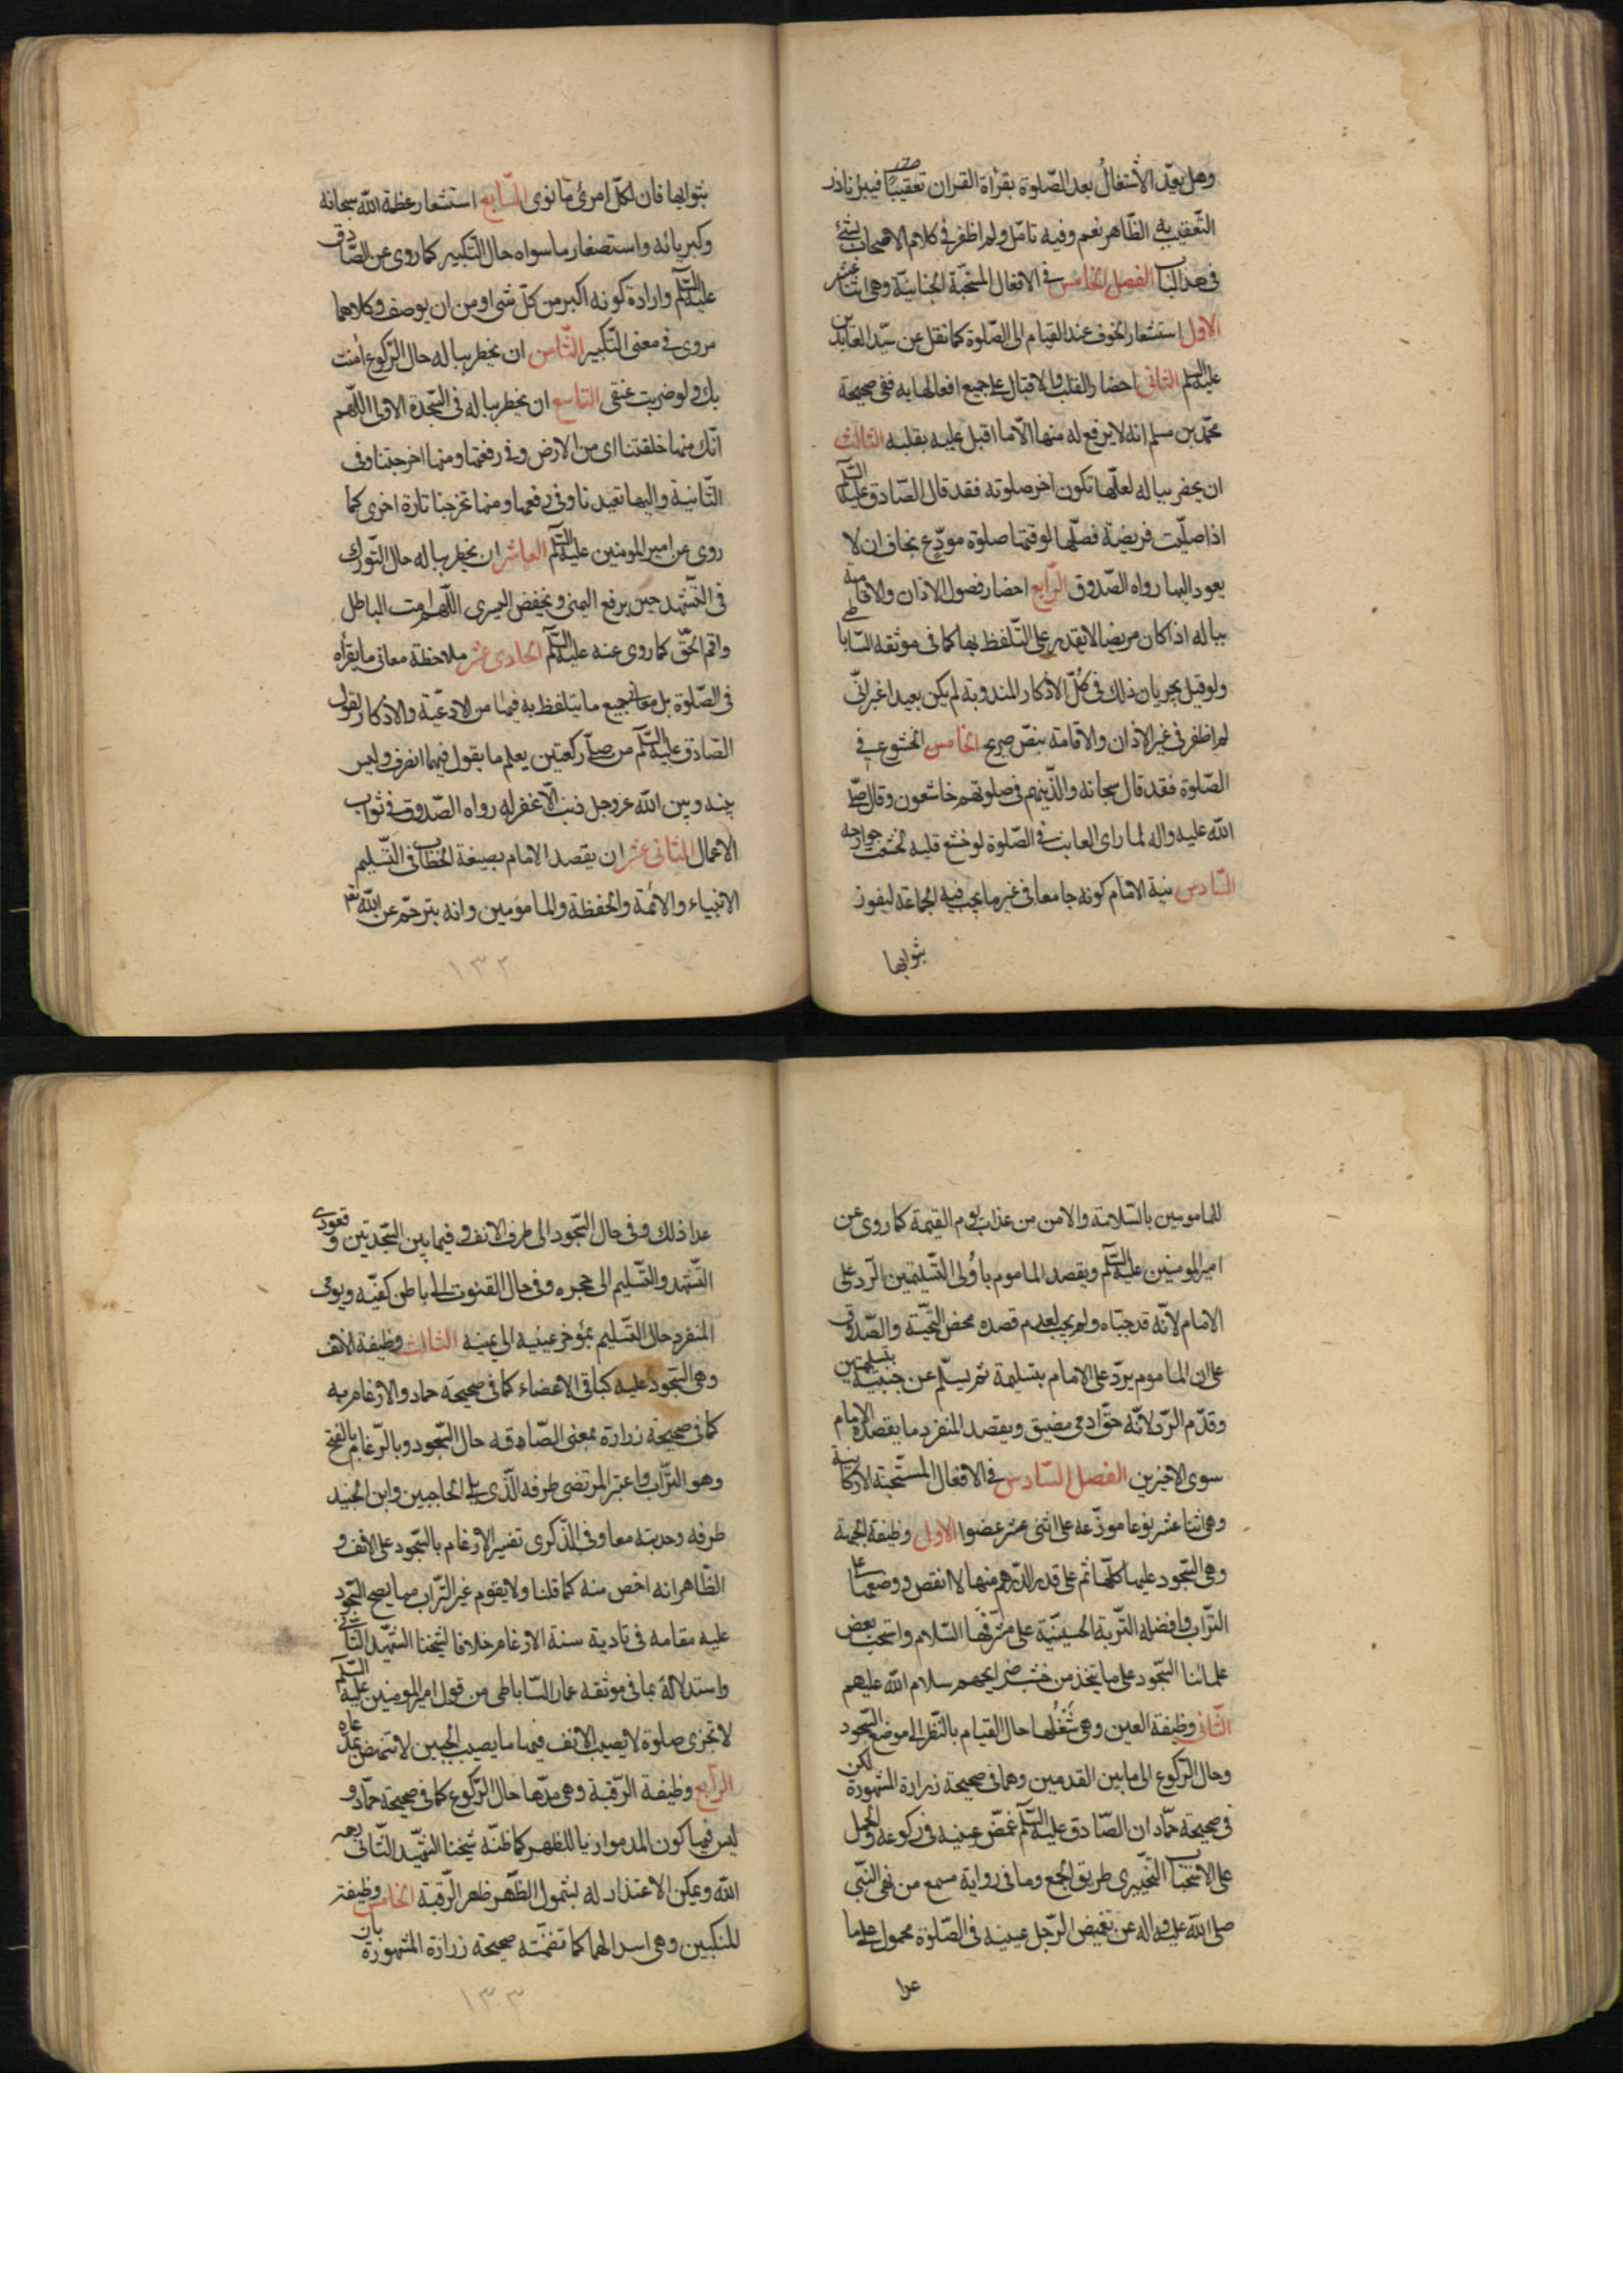 وهل يعدّ الاشتغال بعد الصّلوة بقراءة القران تعقيبًا فيبرّ ناذر
التّعقيب به الظّاهر نعم وفيه تامّل ولم اظفر في كلام الاصحاب بشئ
في هذا الباب الفصل الخامس في الافعال المستحبّة الجنانيّة وهى اثنا عشر
الاول استشعار الخوف عند القيام الى الصّلوة كما نقل عن سيّد العابدين
عليه السلم الثانى احضار القلب والاقبال على جميع افعالها به ففى صحيحة
محمّد بن مسلم انه لا يرفع له منها الّا ما اقبل عليه بقلبه الثالث
ان يحضر بباله لعلّها تكون اخر صلوته فقد قال الصّادق عليه السلم
اذا صلّيت فريضة فصلّها لوقتها صلوة مودّع يخاف ان لا
يعود اليها رواه الصّدوق الرّابع احضار فصول الاذان والاقامة
بباله اذا كان مريضا لا يقدر على التّلفظ بها كما فى موثقه الساباطى
ولو قيل بجريان ذلك فى كلّ الاذكار المندوبة لم يكن بعيدا غير انّى
لم اظفر فى غير الاذان والاقامة بنصّ صريح الخامس الخشوع في
الصّلوة فقد قال سبحانه والّذينهم فى صلوتهم خاشعون وقال صلى
الله عليه واله لما راى العابث في الصّلوة لو خشع قلبه لخشعت جوارحه
السّادس نية الامام كونه جامعا فى غير ما يجب فيه الجماعة ليفوز
بثوابها
بثوابها فان لكلّ امرئ ما نوى السّابع استشعار عظمة الله سبحانه
وكبريائه واستصغار ما سواه حال التكبير كما روى عن الصّادق
عليه السلم وارادة كونه اكبر من كلّ شى او من ان يوصف وكلاهما
مروى في معنى التّكبير الثّامن ان يخطر بباله حال الرّكوع امنت
بك ولو ضربت عنقى التاسع ان يخطر بباله فى السّجدة الاولى اللّهم
انّك منها خلقتنا اى من الارض وفى رفعها ومنها اخرجتنا وفى
الثّانية واليها تعيدنا وفى رفعها ومنها تخرجنا تارة اخرى كما
روى عن امير المومنين عليه السلم العاشر ان يخطر بباله حال التّورك
فى التّشهد حين يرفع اليمنى ويخفض اليسرى اللّهم امت الباطل
واقم الحقّ كما روى عنه عليه السلم الحادى عشر ملاحظة معانى ما يقراه
فى الصّلوة بل معانى جميع ما يتلفظ به فيها من الادعية والاذكار لقول
الصّادق عليه السلم من صلّى ركعتين يعلم ما يقول فيهما انصرف وليس
بينه وبين الله عز وجل ذنب الّا غفر له رواه الصّدوق فى ثواب
الاعمال الثانى عشر ان يقصد الامام بصيغة الخطاب فى التّسليم
الانبياء والائمة والحفظة والمامومين وانه يترجّم عن الله تع
١٣٢
للمامومين بالسّلامة والامن من عذاب يوم القيمة كما روى عن
امير المومنين عليه السلم ويقصد الماموم باولى التّسليمتين الرّد على
الامام لانّه قد حيّاه ولم يجب لعدم قصده محض التّحيّة والصّدوق
على ان الماموم يردّ على الامام بتسليمة ثم يسلّم عن جنبيه بتسليمتين
وقدّم الرّد لانّه حقّ ادمى مضيق ويقصد المنفرد ما يقصده الامام
سوى الاخيرين الفصل السّادس في الافعال المستحبّة الاركانية
وهى اثنا عشر نوعا موزّعه على اثنى عشر عضوا الاول وظيفة الجبهة
وهى السّجود عليها كلّها ثم على قدر الدّرهم منها لا انقص ووضعها على
التّراب وافضله التّربة الحسينيّة على مشرّفها السّلام واستحب بعض
علمائنا السّجود على ما يتخذ من خشب ضرايحهم سلام الله عليهم
الثّانى وظيفة العين وهى شُغُلها حال القيام بالنّظر الى موضع السّجود
وحال الرّكوع الى ما بين القدمين وهما فى صحيحة زرارة المشهورة لكن
فى صحيحة حمّاد ان الصّادق عليه السلم غمّض عينيه فى ركوعه والحمل
على الاستحباب التّخييرى طريق الجمع وما فى رواية مسمع من نهى النّبى
صلى الله عليه واله عن تغميض الرّجل عينيه فى الصّلوة محمول على ما
عدا
عدا ذلك وفى حال السّجود الى طرف الانف وفيما بين السّجدتين وقعودى
التّشهد والتّسليم الى حجره وفى حال القنوت الى باطن كفّيه ويومى
المنفرد حال التّسليم بمؤخر عينيه الى يمينه الثالث وظيفة الانف
وهى السّجود عليه كباقى الاعضاء كما فى صحيحة حماد والارغام به
كما فى صحيحة زرارة بمعنى الصاقه حال السّجود بالرّغام بالفتح
وهو التّراب واعتبر المرتضى طرفه الّذى يلى الحاجبين وابن الجنيد
طرفه وحدبته معا وفى الذّكرى تفسير الارغام بالسّجود على الانف و
الظّاهر انه اخص منه كما قلنا ولا يقوم غير التّراب مما يصح السّجود
عليه مقامه فى تادية سنة الارغام خلافا لشيخنا الشّهيد الثانى
واستدلاله بما فى موثقه عمار السّاباطى من قول امير المومنين عليه السلم
لا تجزى صلوة لا يصيب الانف فيها ما يصيب الجبين لا تنهض بمدعاه
الرّابع وظيفة الرّقبة وهى مدّها حال الرّكوع كما فى صحيحة حمّاد و
ليس فيها كون المد موازيا للظهر كما ظنّه شيخنا الشّهيد الثّانى رحمه
الله ويمكن الاعتذار له بشمول الظّهر ظهر الرّقبة الخامس وظيفة
المنكبين وهى اسدالهما كما تضمّنته صحيحة زرارة المشهورة بان
١٣٣